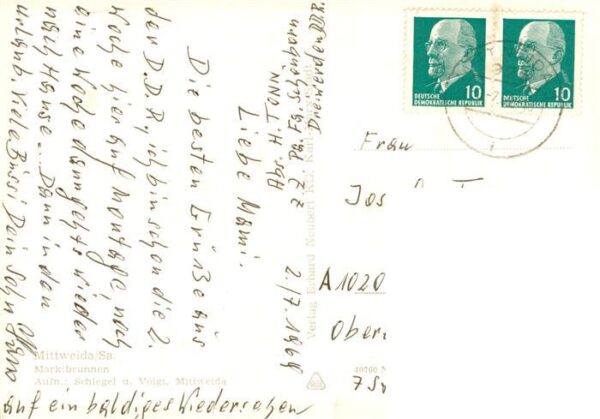 Abs. H. TONN
z. Z. Pa. Fa. Schönherr
Dreiwerden DDR.
2./7. 1969
Liebe Mami.
Die besten Grüße aus
der D.D.R, ich bin schon die 2.
Woche hier auf Montage, noch
eine Woche dann gehts wieder
nach Hause... Dann in den
Urlaub. Viele Bussi Dein Sohn
auf ein baldiges Wiedersehen
Mittweida/Sa.
Marktbrunnen
Aufn.: Schlegel u. Voigt, Mittweida
Verlag Erhard Neubert KG, Karl
10
DEUTSCHE
DEMOKRATISCHE REPUBLIK
10
DEUTSCHE
DEMOKRATISCHE REPUBLIK
Frau
Jos
A 1020
Ober
7